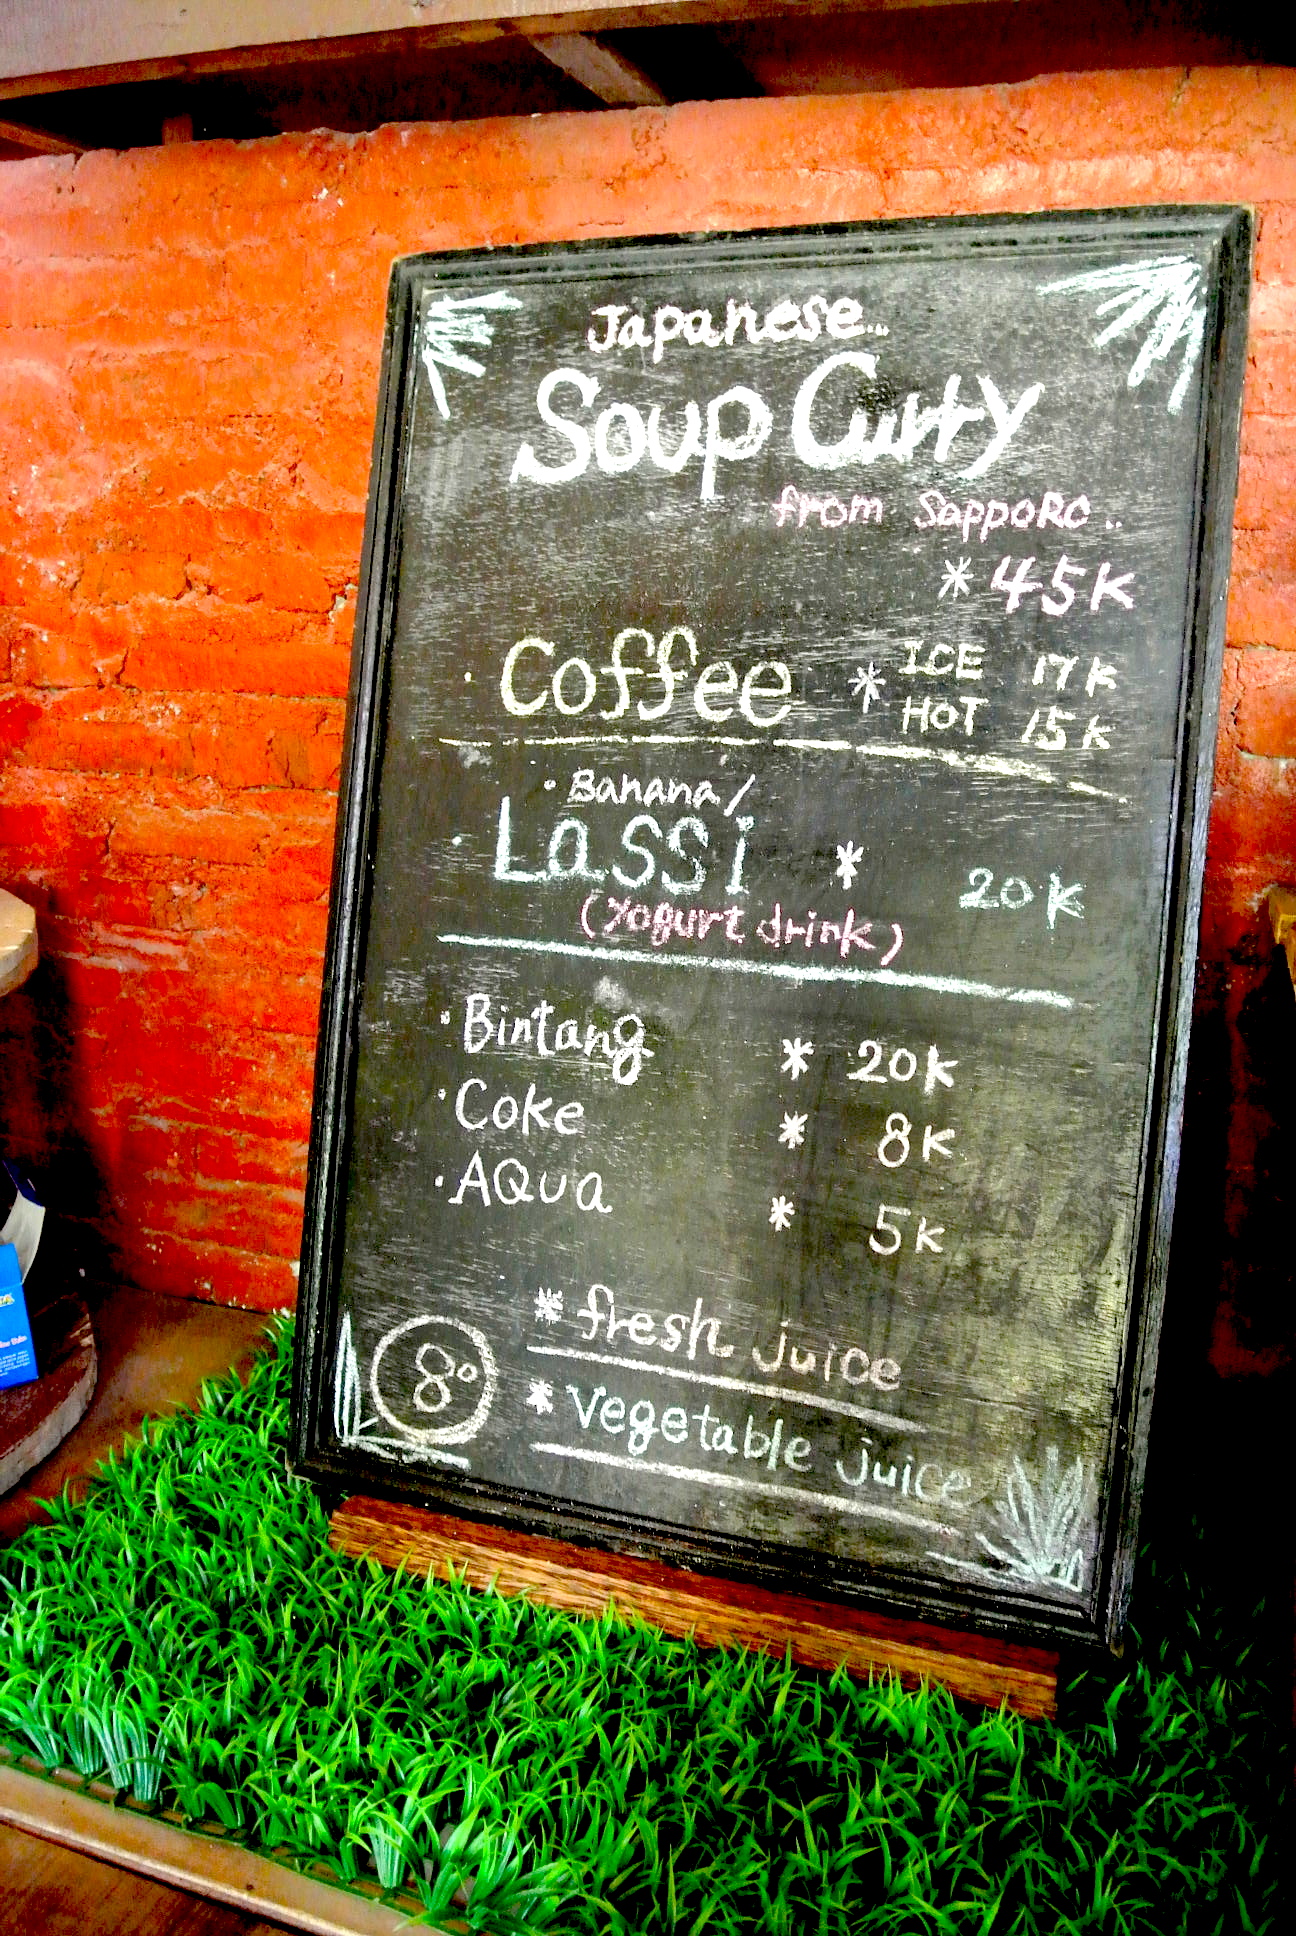 Japanese...
Soup Curry
from Sapporo..
* 45K
· Coffee * ICE 17K
HOT 15K
· Banana/
· Lassi * 20K
(Yogurt drink)
· Bintang * 20K
· Coke * 8K
· AQUa * 5K
* fresh juice
8°
* Vegetable juice